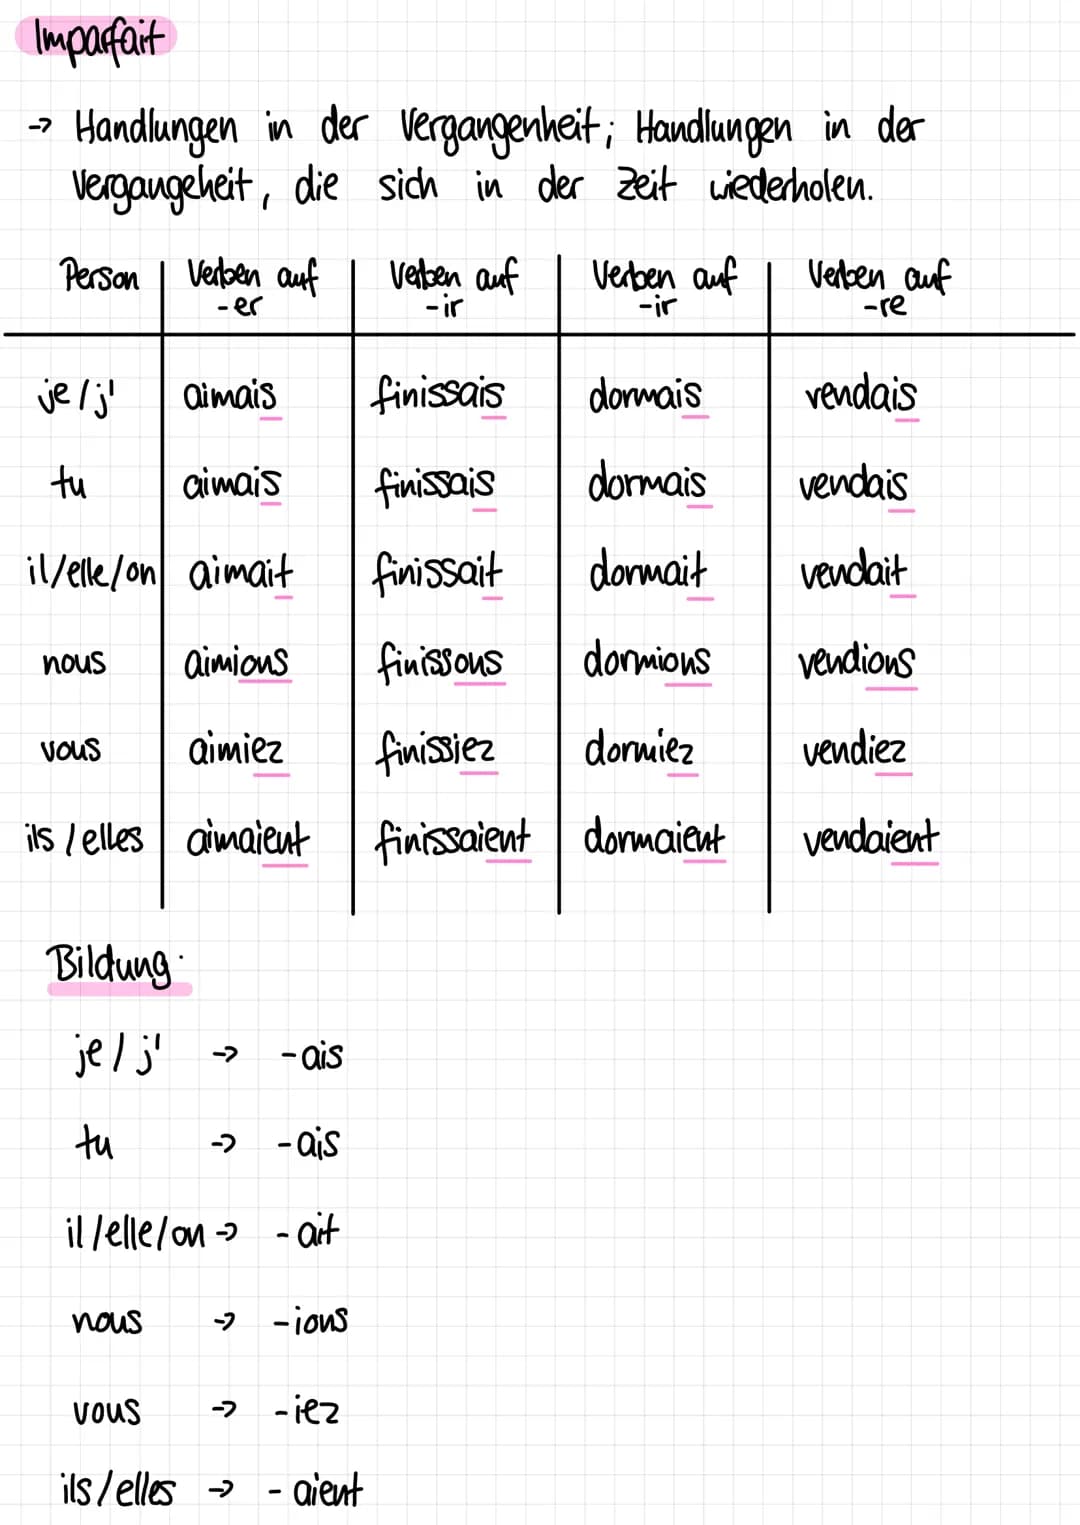 Imparfait
-> Handlungen in der Vergangenheit; Handlungen in der
Vergangeheit, die sich in der Zeit wiederholen.
Person | Verben auf -er | Verben auf -ir | Verben auf -ir | Verben auf -re
je/j' | aimais | finissais | dormais | vendais
tu | aimais | finissais | dormais | vendais
il/elle/on | aimait | finissait | dormait | vendait
nous | aimions | finissons | dormions | vendions
vous | aimiez | finissiez | dormiez | vendiez
ils/elles | aimaient | finissaient | dormaient | vendaient
Bildung:
je/j' -> -ais
tu -> -ais
il/elle/on -> -ait
nous -> -ions
vous -> -iez
ils/elles -> -aient